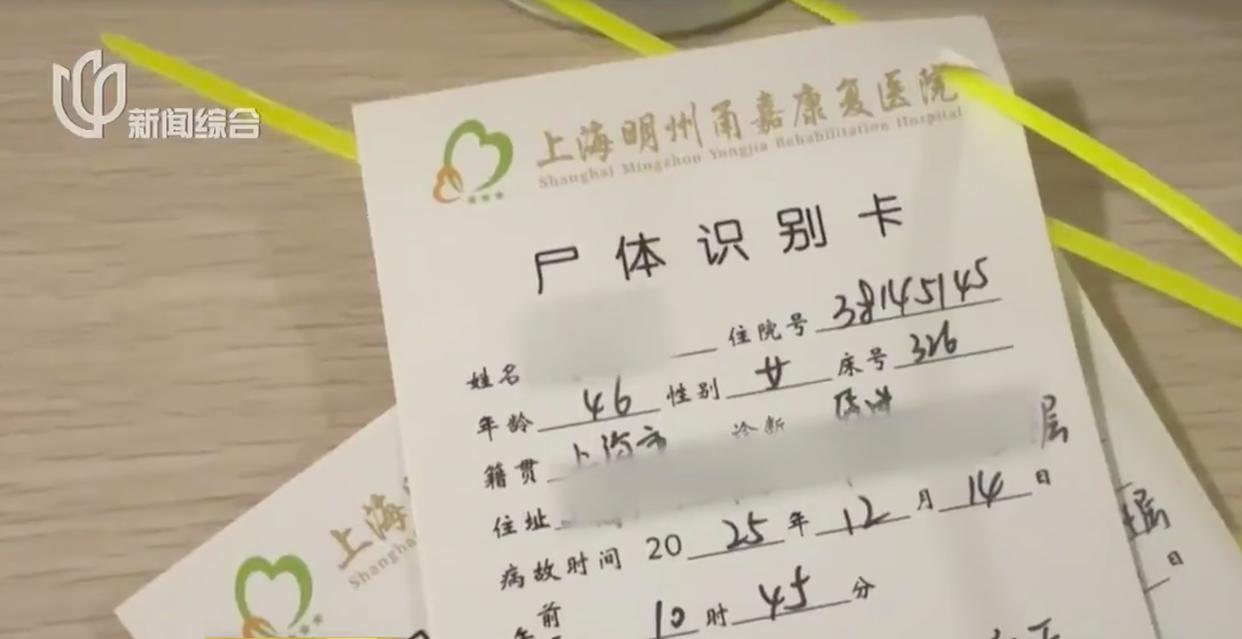 新闻综合
上海明州甬嘉康复医院
Shanghai Mingzhou Yongjia Rehabilitation Hospital
尸体识别卡
姓名 住院号 38145145
年龄 46 性别 女 床号 326
籍贯 上海市 诊断
住址 层
病故时间 2025年12月14日
前
10时45分
上海
Shangha
层
日